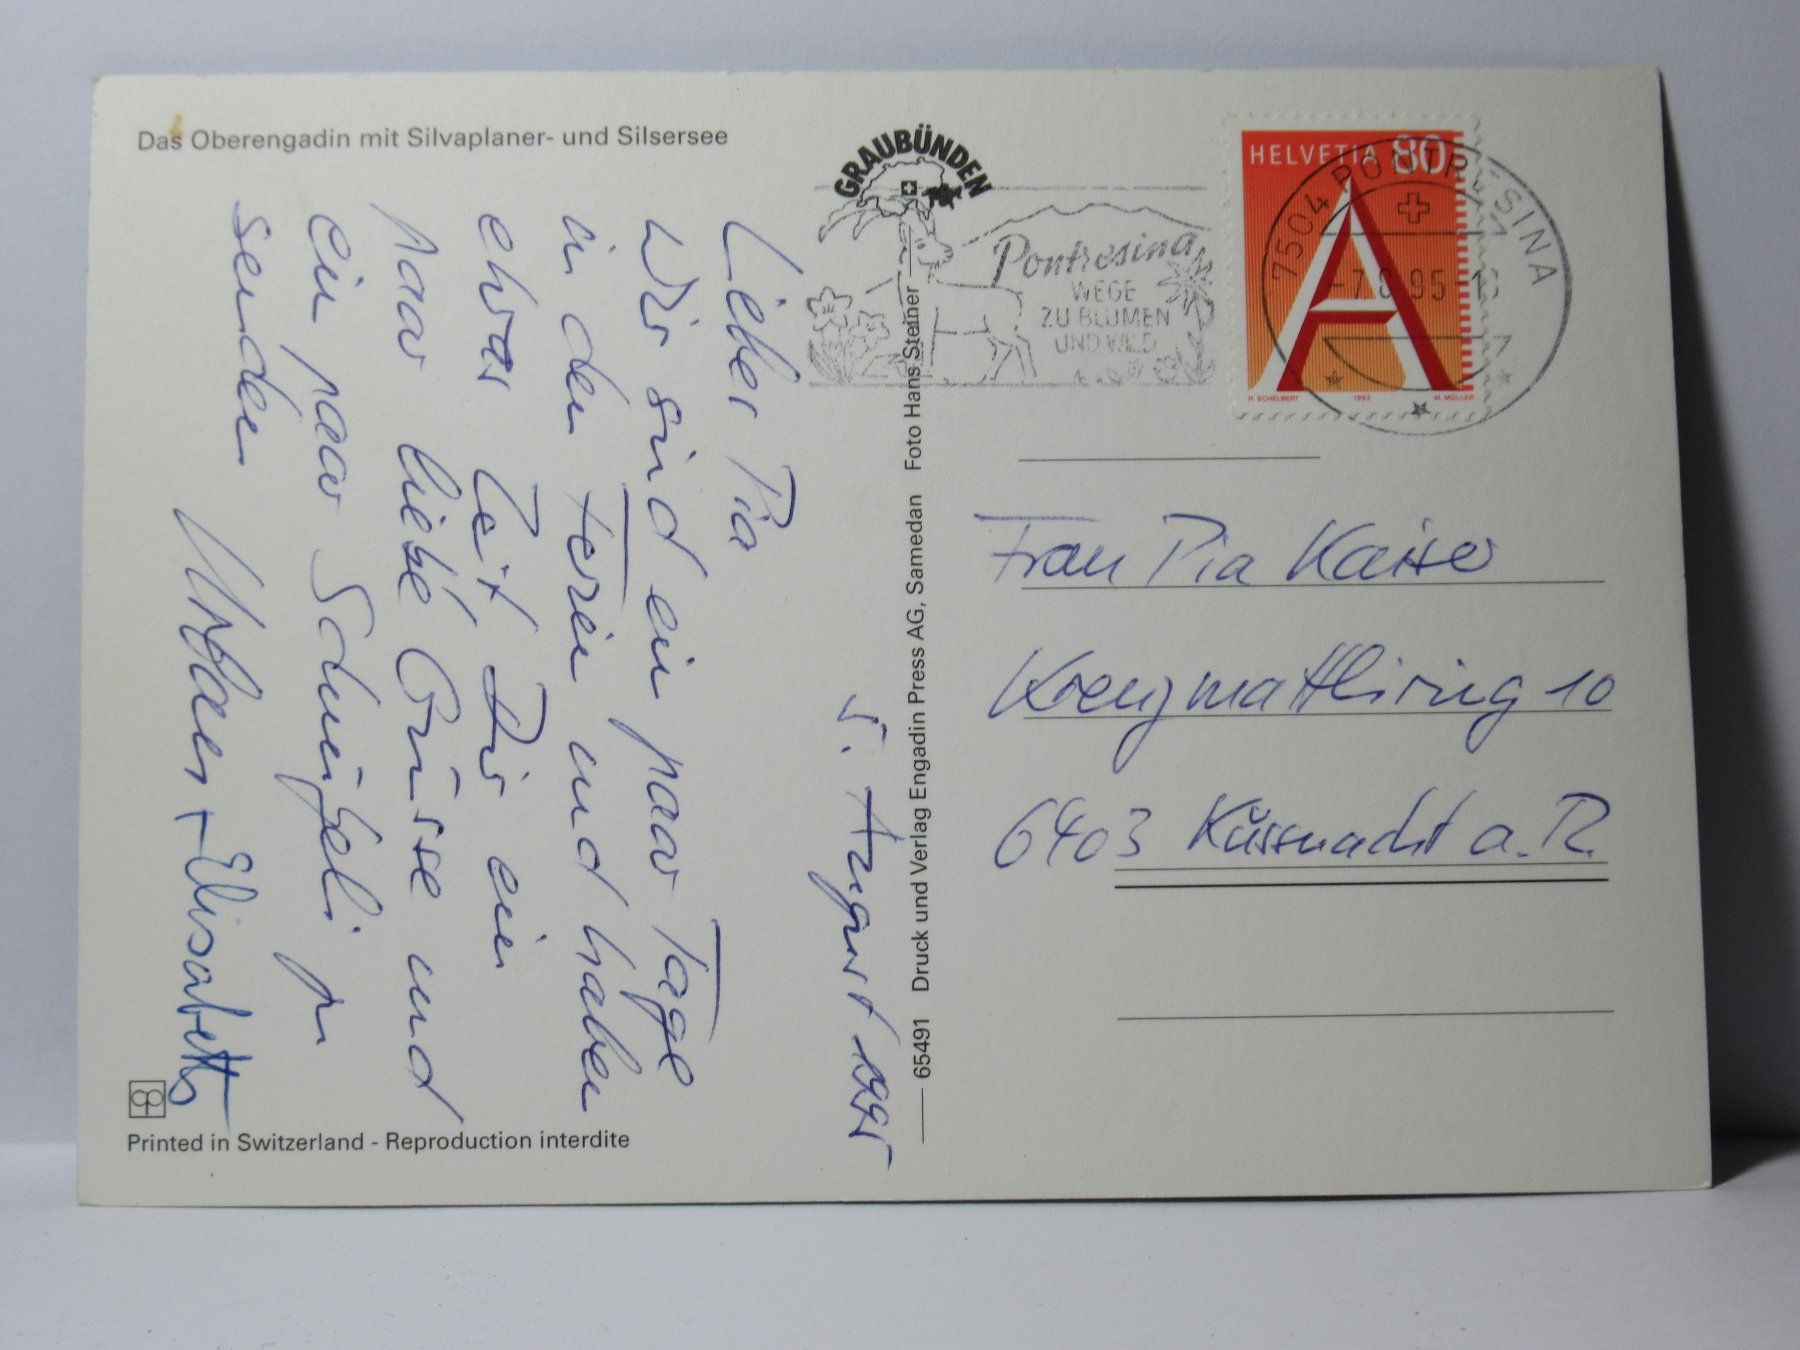 Das Oberengadin mit Silvaplaner- und Silsersee
GRAUBÜNDEN
Pontresina
WEGE
ZU BLUMEN
UND WILD
HELVETIA 80
A
H. SCHELBERT 1993 M. MÜLLER
7504 PONTRESINA
-7.8.95-
5. August 1995
Liebe Pia
Wir sind ein paar Tage
in den Ferien und haben
etwas Zeit Dir ein
paar liebe Grüsse und
ein paar zu
senden
+ Elisabeth
65491 Druck und Verlag Engadin Press AG, Samedan Foto Hans Steiner
Frau Pia Kaiser
Kreuzmattliring 10
6403 Küssnacht a. R.
Printed in Switzerland - Reproduction interdite